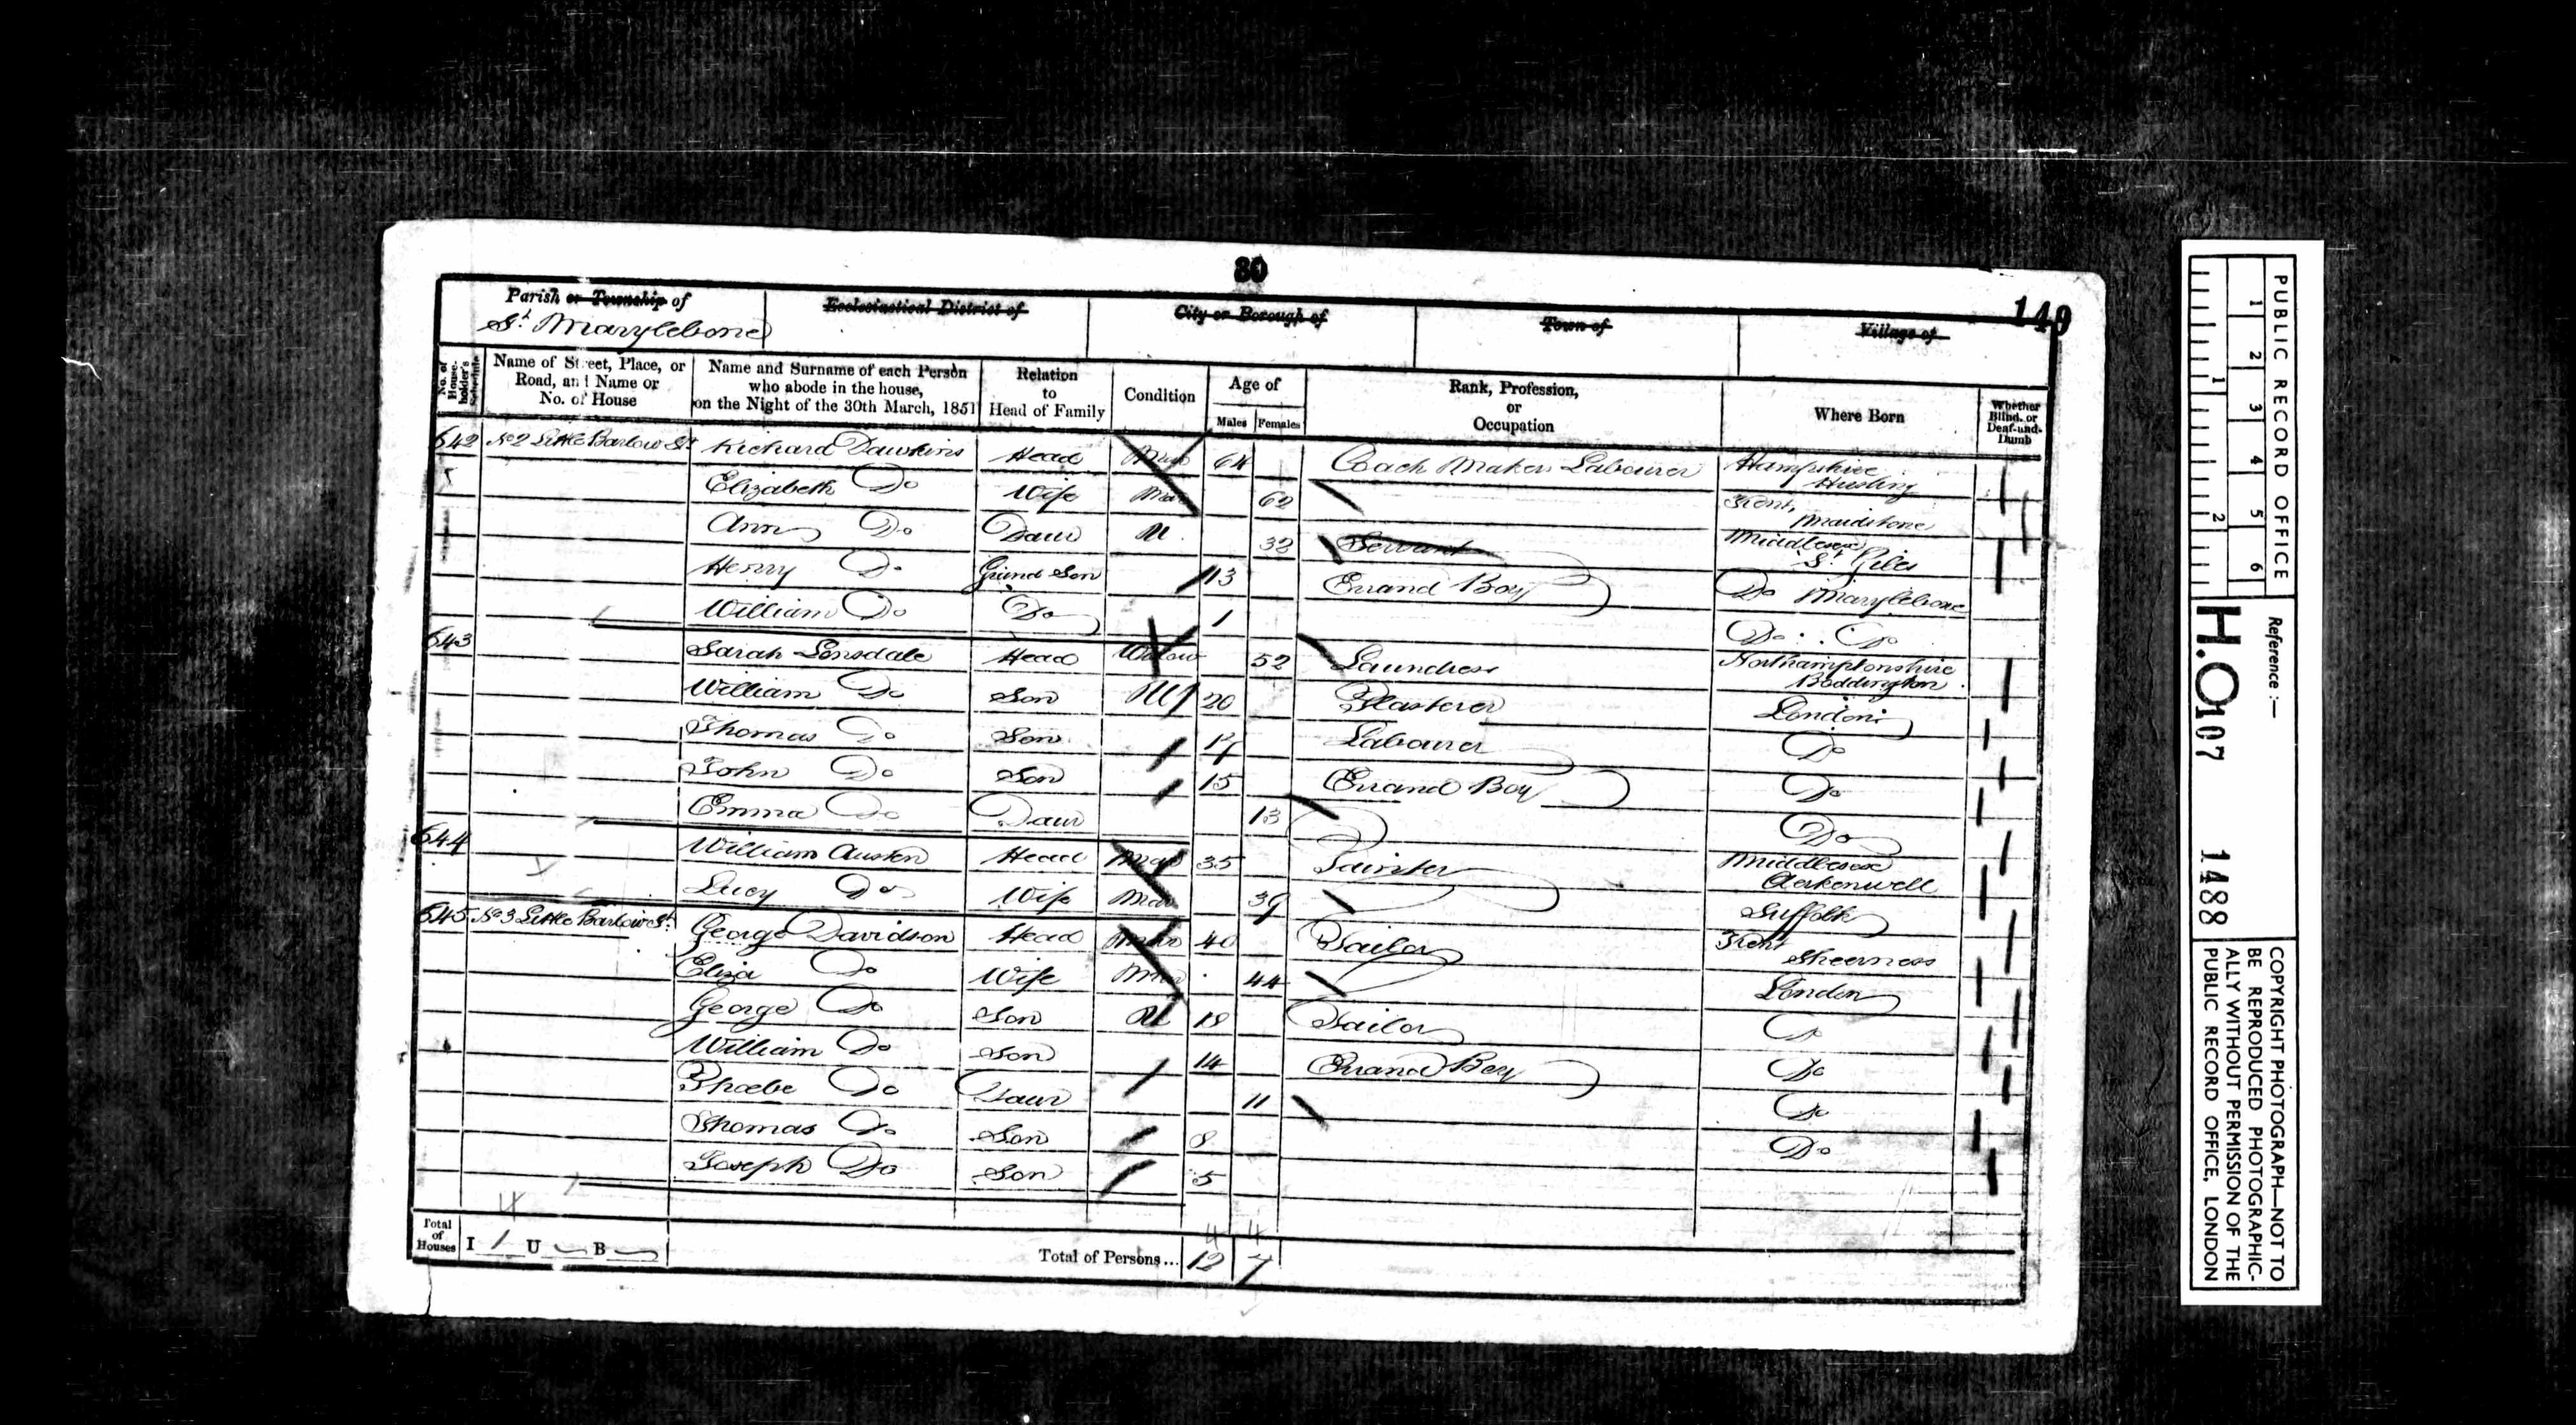 80
149
Parish or Township of
St Marylebone
Ecclesiastical District of
City or Borough of
Town of
Village of
No. of House-holder's Schedule
Name of Street, Place, or Road, and Name or No. of House
Name and Surname of each Person who abode in the house, on the Night of the 30th March, 1851
Relation to Head of Family
Condition
Age of
Males Females
Rank, Profession, or Occupation
Where Born
Whether Blind, or Deaf-and-Dumb
642 No 2 Little Barlow St Richard Dawkins Head Mar 64 Coach Maker Labourer Hampshire
Elizabeth Do Wife Mar 62 Kent, Maidstone
Ann Do Daur U 32 Servant Middlesex St Giles
Henry Do Grand Son 13 Errand Boy Do Marylebone
William Do Do 1 Do Do
643 Sarah Lonsdale Head Widow 52 Laundress Northamptonshire Boddington
William Do Son U 20 Plasterer London
Thomas Do Son Labourer Do
John Do Son 15 Errand Boy Do
Emma Do Daur 13 Do
644 William Austen Head Mar 35 Painter Middlesex Clerkenwell
Lucy Do Wife Mar 39 Suffolk
645 No 3 Little Barlow St George Davidson Head Mar 40 Tailor Kent Sheerness
Eliza Do Wife Mar 44 London
George Do Son U 18 Tailor Do
William Do Son 14 Errand Boy Do
Phoebe Do Daur 11 Do
Thomas Do Son 8 Do
Joseph Do Son 5
4 4 4
Total of Houses I 1 U B
Total of Persons... 12 7
PUBLIC RECORD OFFICE
1 2 3 4 5 6
1 2
Reference :—
H.O. 107 1488
COPYRIGHT PHOTOGRAPH—NOT TO
BE REPRODUCED PHOTOGRAPHIC-
ALLY WITHOUT PERMISSION OF THE
PUBLIC RECORD OFFICE, LONDON